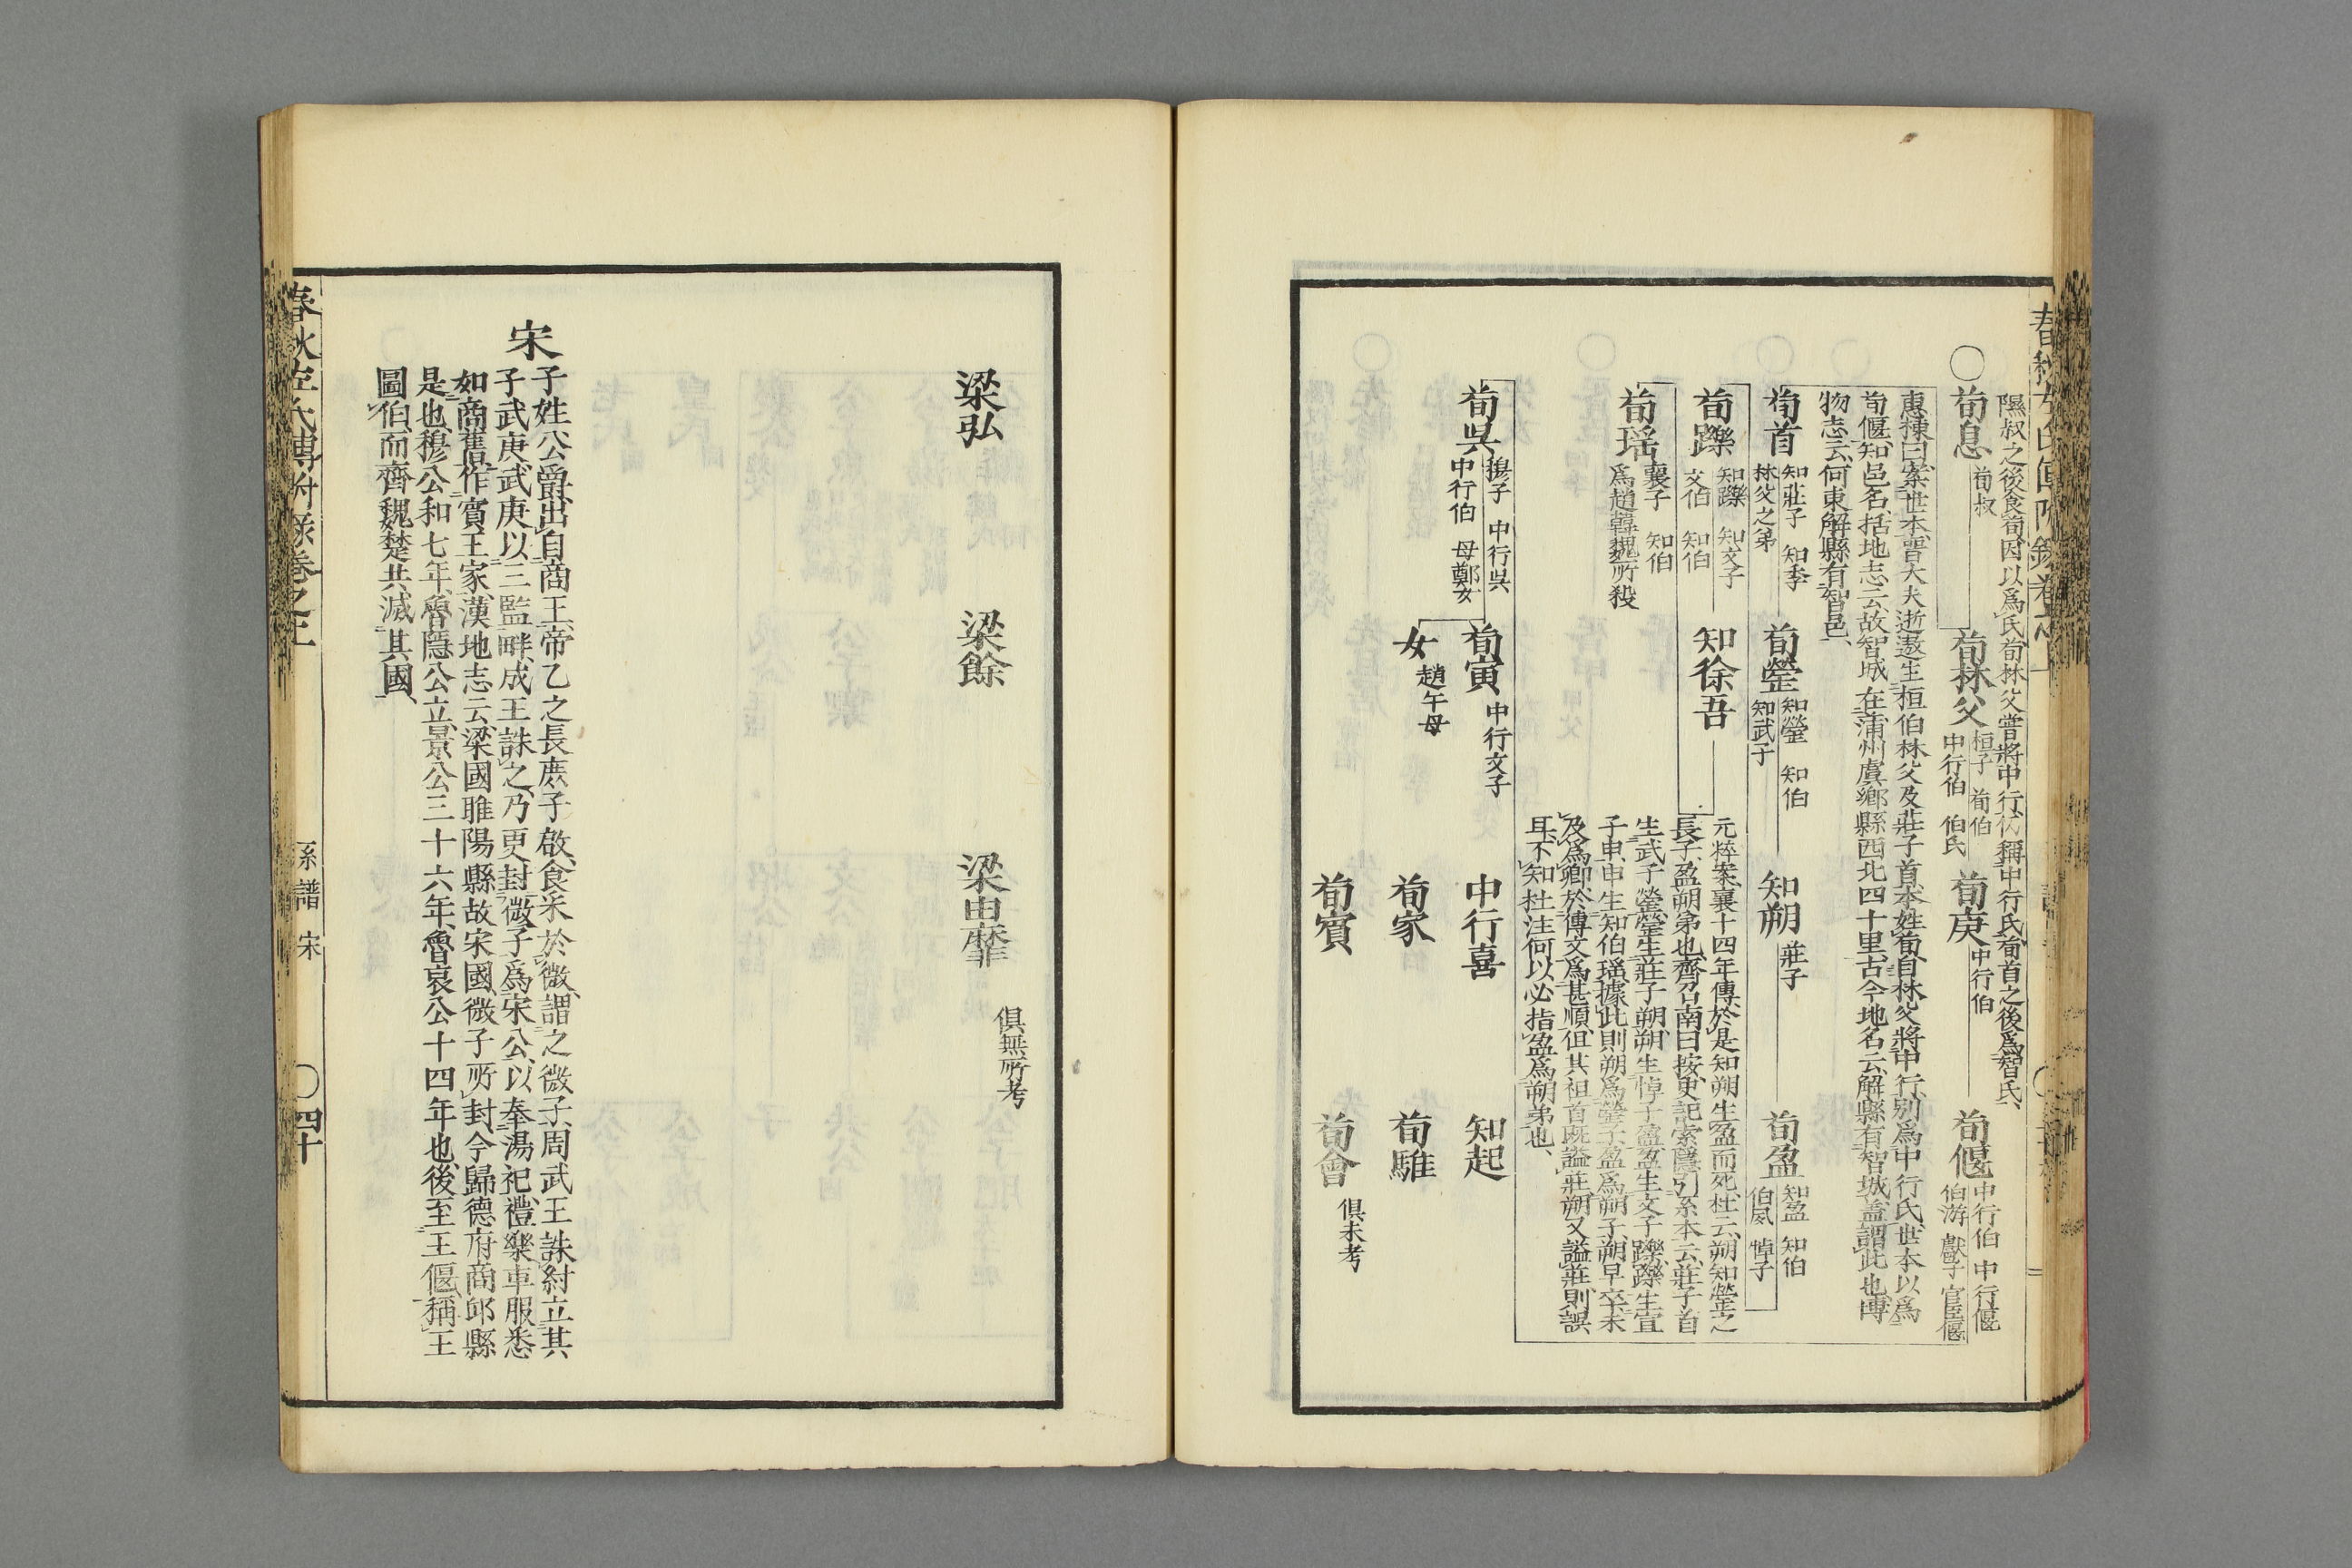 隰叔之後食荀因以爲氏荀林父嘗將中行仍稱中行氏荀首之後爲智氏
○荀息
荀叔
荀林父
桓子 荀伯
中行伯 伯氏
荀庚
中行伯
荀偃
中行伯 中行偃
伯游 獻子 官臣偃
惠棟曰案世本晉大夫逝遨生桓伯林父及莊子首本姓荀自林父將中行別爲中行氏世本以爲
荀偃知邑名括地志云故智城在蒲州虞鄉縣西北四十里古今地名云解縣有智城蓋謂此也博
物志云河東解縣有智邑
荀首
知莊子 知季
林父之弟
荀罃
知罃 知伯
知武子
知朔
莊子
荀盈
知盈 知伯
伯夙 悼子
荀躒
知躒 知文子
文伯 知伯
知徐吾
元粹案襄十四年傳於是知朔生盈而死杜云朔知罃之
長子盈朔弟也齊召南曰按史記索隱引系本云莊子首
生武子罃罃生莊子朔朔生悼子盈盈生文子躒躒生宣
子申申生知伯瑤據此則朔爲罃子盈爲朔子朔早卒未
及爲卿於傳文爲甚順但其祖首既謚莊朔又謚莊則誤
耳不知杜注何以必指盈爲朔弟也
荀瑤
襄子 知伯
爲趙韓魏所殺
荀吳
穆子 中行吳
中行伯 母鄭女
荀寅
中行文子
女
趙午母
中行喜
知起
荀家
荀騅
荀賓
荀會
俱未考
梁弘
梁餘
梁由靡
俱無所考
宋
子姓公爵出自商王帝乙之長庶子啟食采於微謂之微子周武王誅紂立其
子武庚武庚以三監畔成王誅之乃更封微子爲宋公以奉湯祀禮樂車服悉
如商舊作賓王家漢地志云梁國睢陽縣故宋國微子所封今歸德府商邱縣
是也穆公和七年魯隱公立景公三十六年魯哀公十四年也後至王偃稱王
圖伯而齊魏楚共滅其國
春秋左氏傳附錄卷之上
系譜 宋
○四十